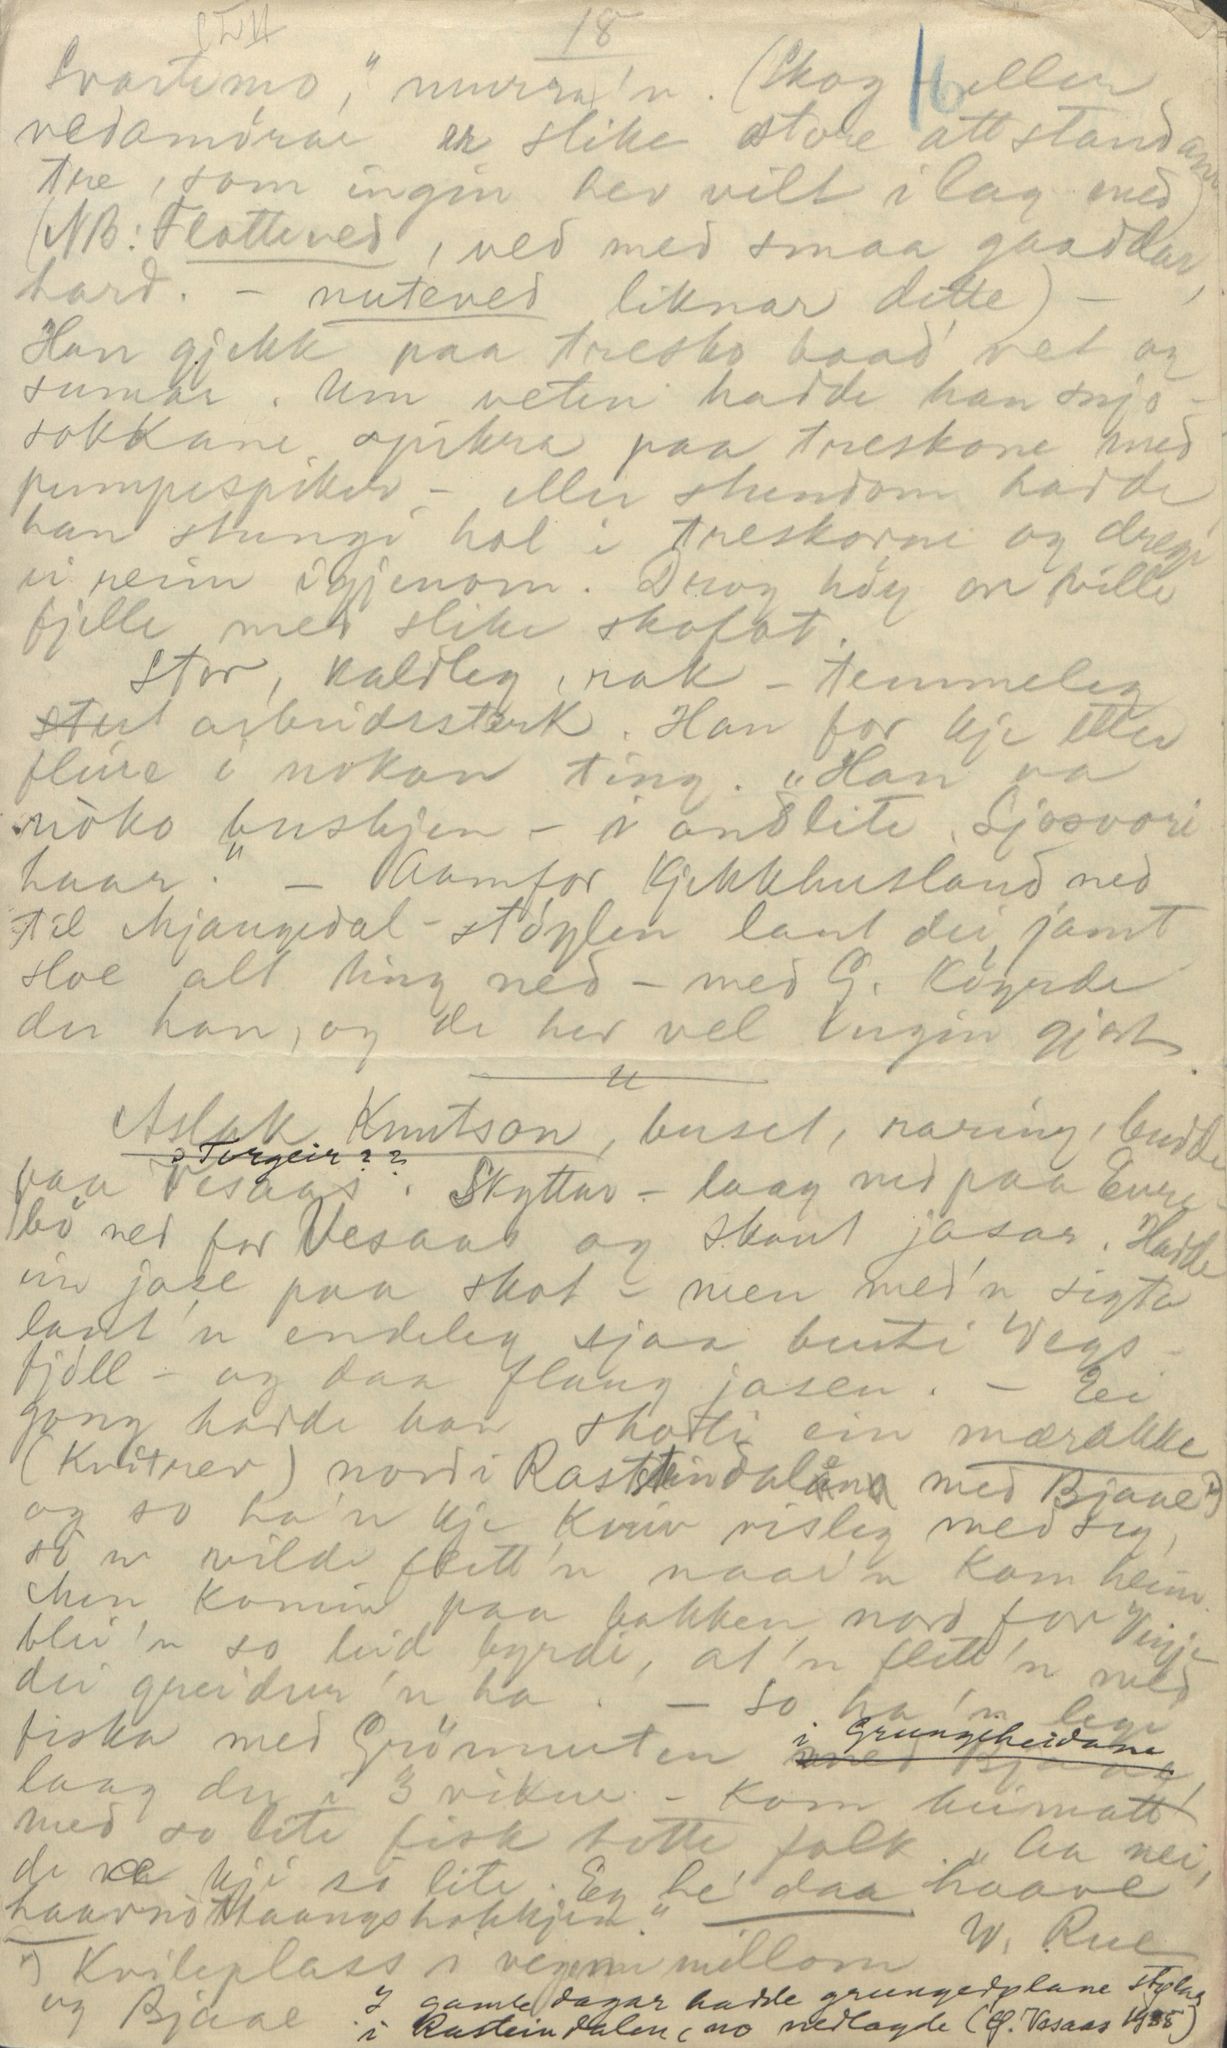 18
16
Svartemo," murra'n. (Skog eller
vedamórar er slike store attstandane
tre, som ingin hev vilt ilag med)
(NB: Flotteved, ved med smaa gaaddar,
hard. - nuteved liknar dette) -
Han gjekk paa tresko baad' vet og
sumar. Um veten hadde han snjo-
sokkane spikra paa treskone med
pumpespiker - eller stundom hadde
han stungi hol i treskorne og dregi
ei reim igjenom. Drog høg or ville
fjelle med slike skofot.
Stor, kaldleg, rak - temmeleg
arbeidssterk. Han for kje etter
fleire i nokan ting. "Han va
nòko buskjen - i andlite. Sjosvori
haar." - Aamfor Kjekkhusland ned
til Mjaugedal-støylen laut dei jamt
sloe alt ting ned - med G. køyrde
der han, og de hev vel ingin gjort.
Aslak Knutson, buset, raring, budde
o Torgeir??
paa Vesaas. Skyttar - laag ned paa Eure-
bø ned for Vesaas og skaut jasar. Hadde
ein jase paa skot - men med'n sigta
laut'n endeleg sjaa burti Vegs-
fjøll - og daa flaug jasen. - Ei
gong hadde han skoti ein mærakke
(Kvitrev) nord i Rasteindalåna med Bjaae *)
og so ha'n kje kniv risleg med seg,
so'n vilde flett'n naar'n kom heim.
Men komin paa bakken nord for Vinje
blei'n so leid byrdi, at'n flett'n med
dei greidur'n ha. - So ha'n legi
fiska med Grönnuten i Grungeheidane
laag der i 3 vikur - kom heimatt
med so lite fisk totte folk. "Aa nei,
de va kji so lite. Eg he' daa haave
haavnòttaangshokkjen."
W. Rue
*) Kvileplass i vegen millom
og Bjaae
I gamle dagar hadde grungedølane støylar
i Rasteindalen, no nedlagde (Ol. Vesaas 1935)